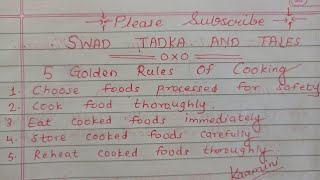 Please Subscribe
SWAD TADKA AND TALES
OXO
5 Golden Rules Of Cooking
1. Choose foods processed for safety
2. Cook food thoroughly.
3 Eat cooked foods immediately
4. Store cooked foods carefully
5. Reheat cooked foods thoroughly.
Kaamini